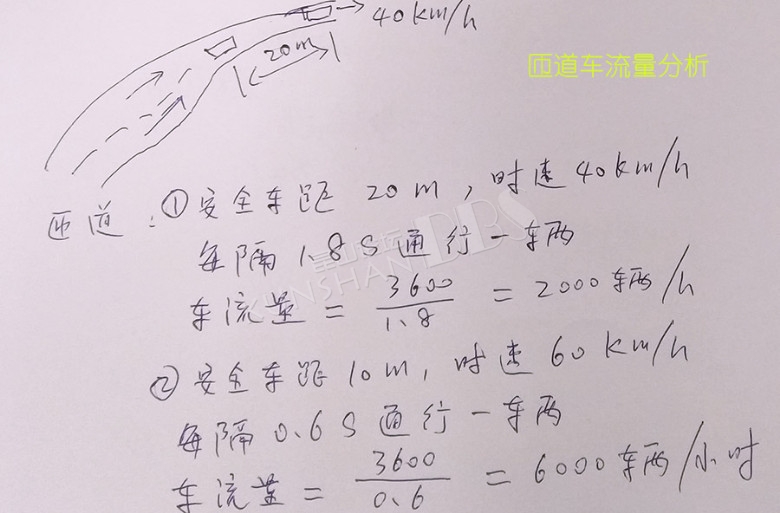 40km/h
20m
匝道车流量分析
匝道:①安全车距 20m,时速40km/h
每隔1.8S通行一车两
车流量=3600/1.8=2000车两/h
②安全车距10m,时速60km/h
每隔0.6S通行一车两
车流量=3600/0.6=6000车两/小时
KUNSHAN BBS